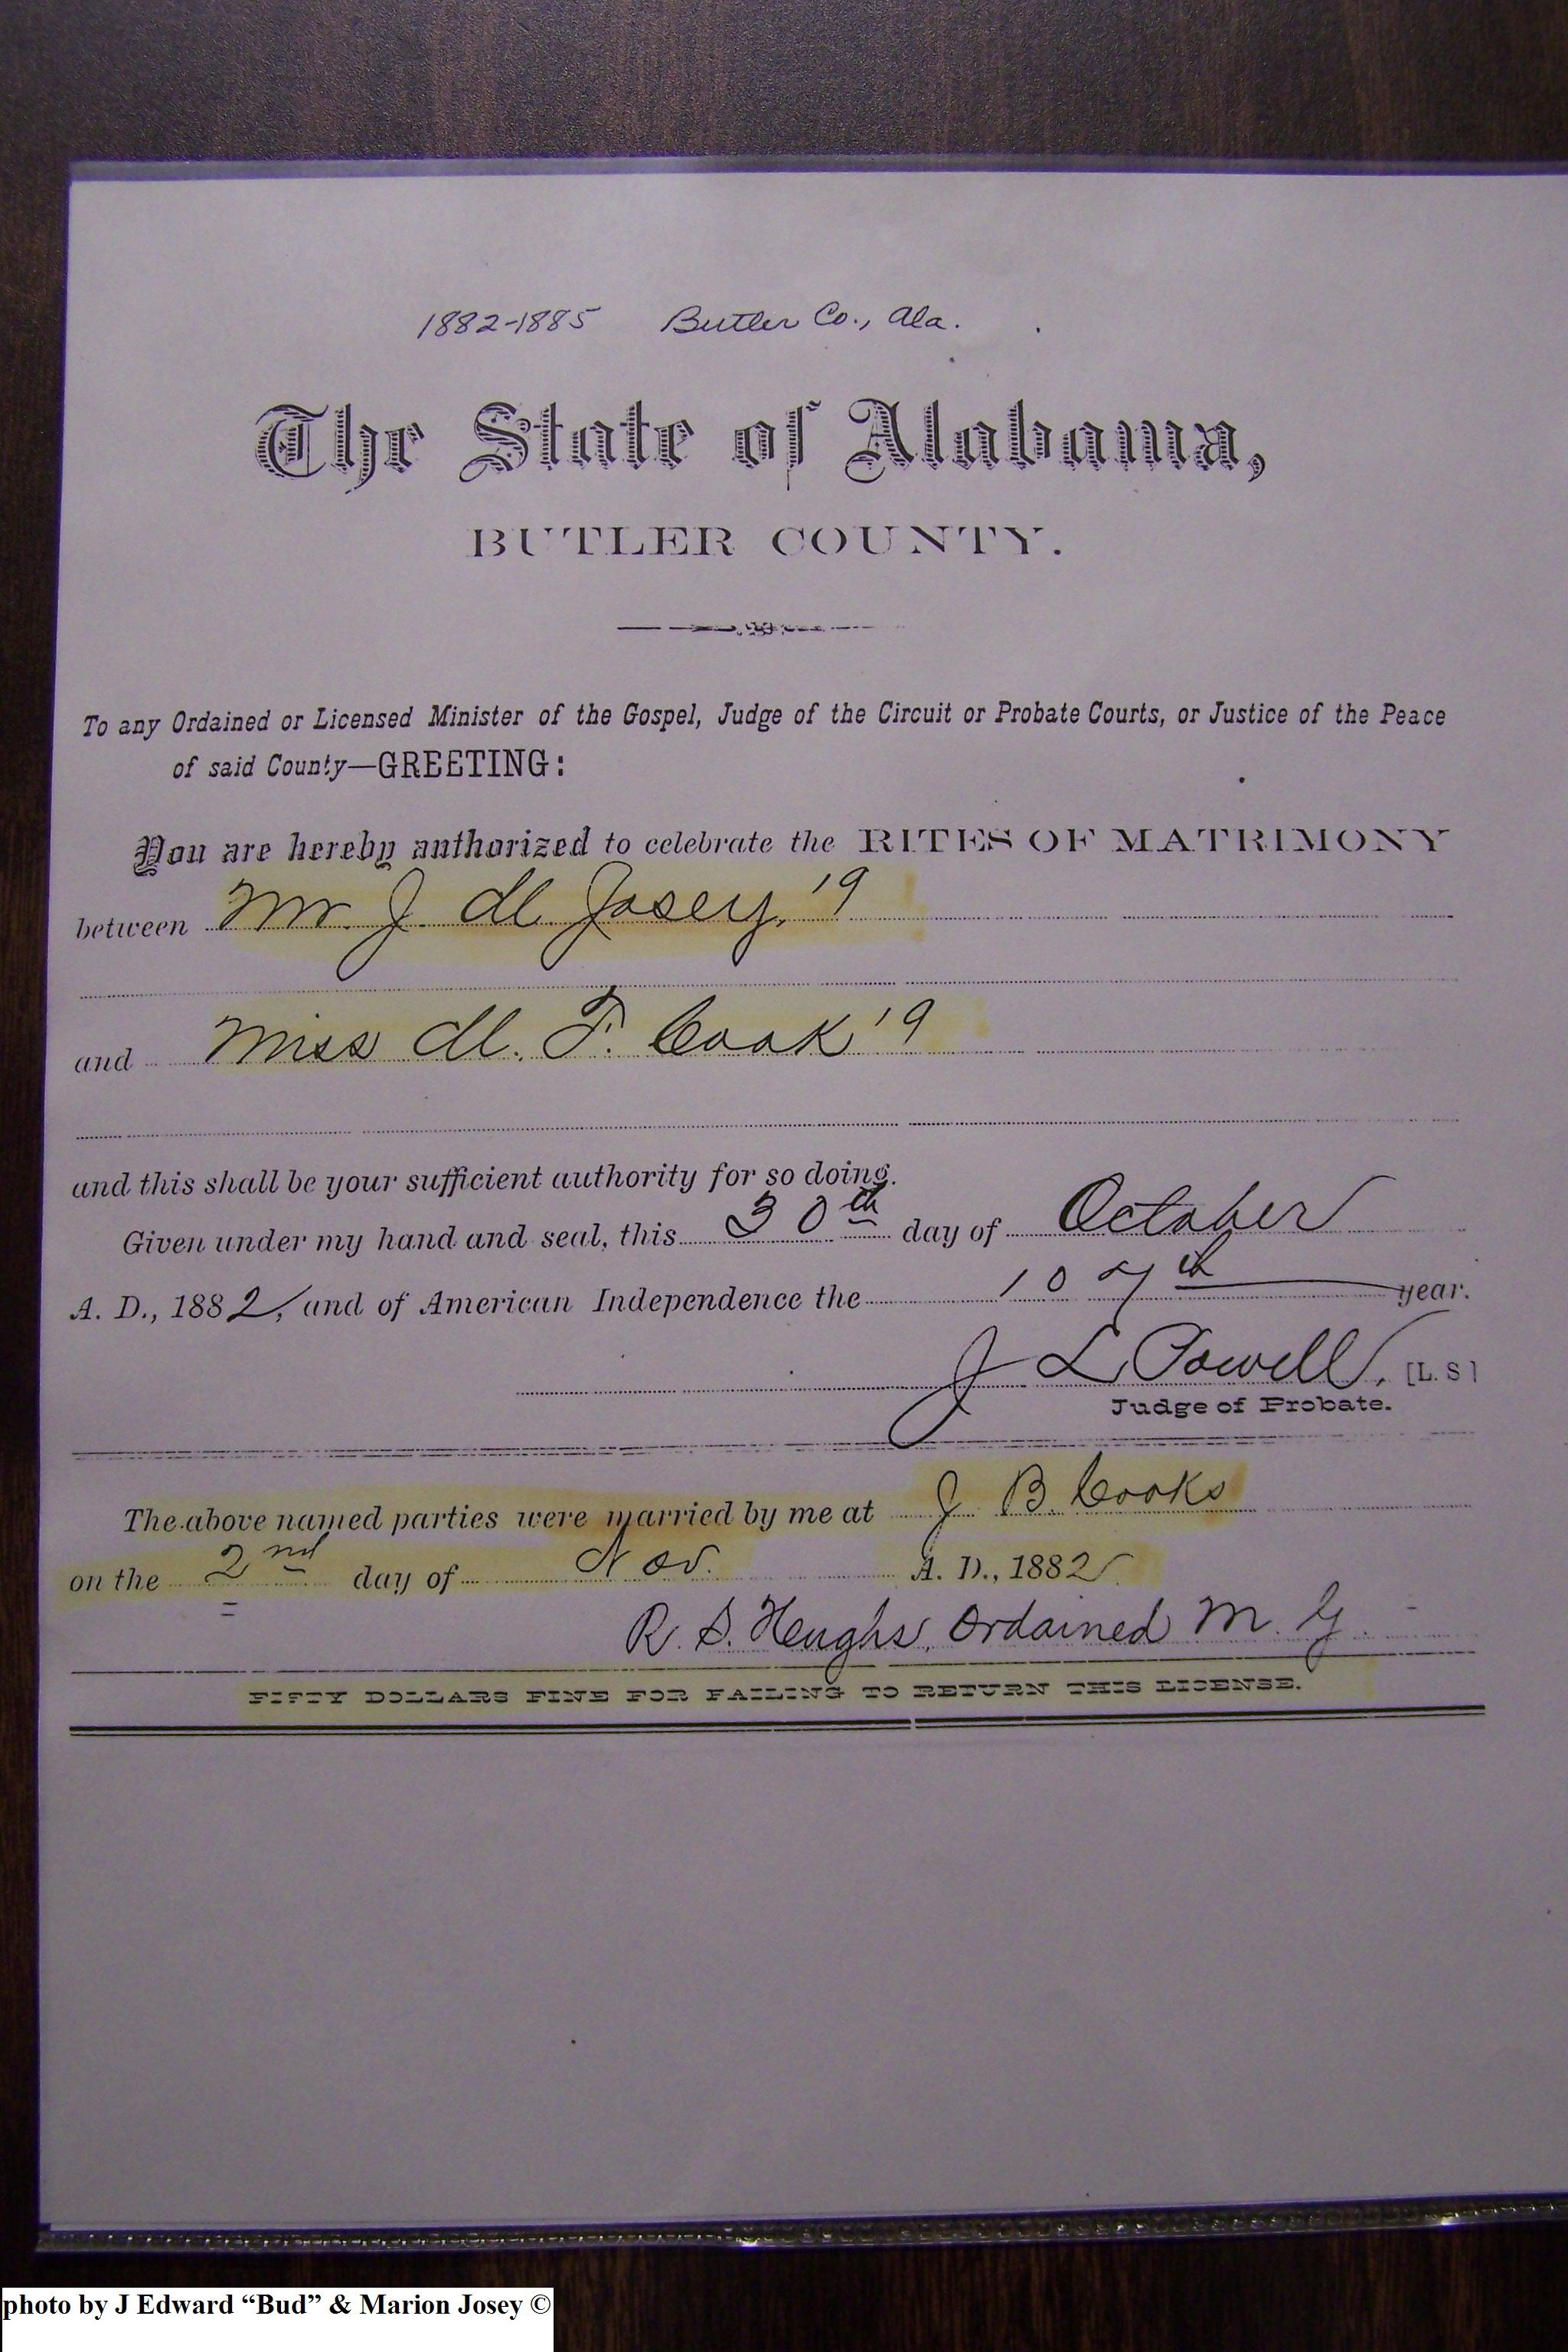 1882-1885 Butler Co., Ala.
The State of Alabama,
BUTLER COUNTY.
To any Ordained or Licensed Minister of the Gospel, Judge of the Circuit or Probate Courts, or Justice of the Peace
of said County—GREETING:
You are hereby authorized to celebrate the RITES OF MATRIMONY
between Mr. J. M Josey, '9
and Miss M. F. Cook '9
and this shall be your sufficient authority for so doing.
Given under my hand and seal, this 30th day of October
A. D., 1882, and of American Independence the 107th year.
J L Powell, [L. S]
Judge of Probate.
The above named parties were married by me at J B. Cooks
on the 2nd day of Nov. A. D., 1882
R. S. Heughs, Ordained M. G.
FIFTY DOLLARS FINE FOR FAILING TO RETURN THIS LICENSE.
photo by J Edward “Bud” & Marion Josey ©